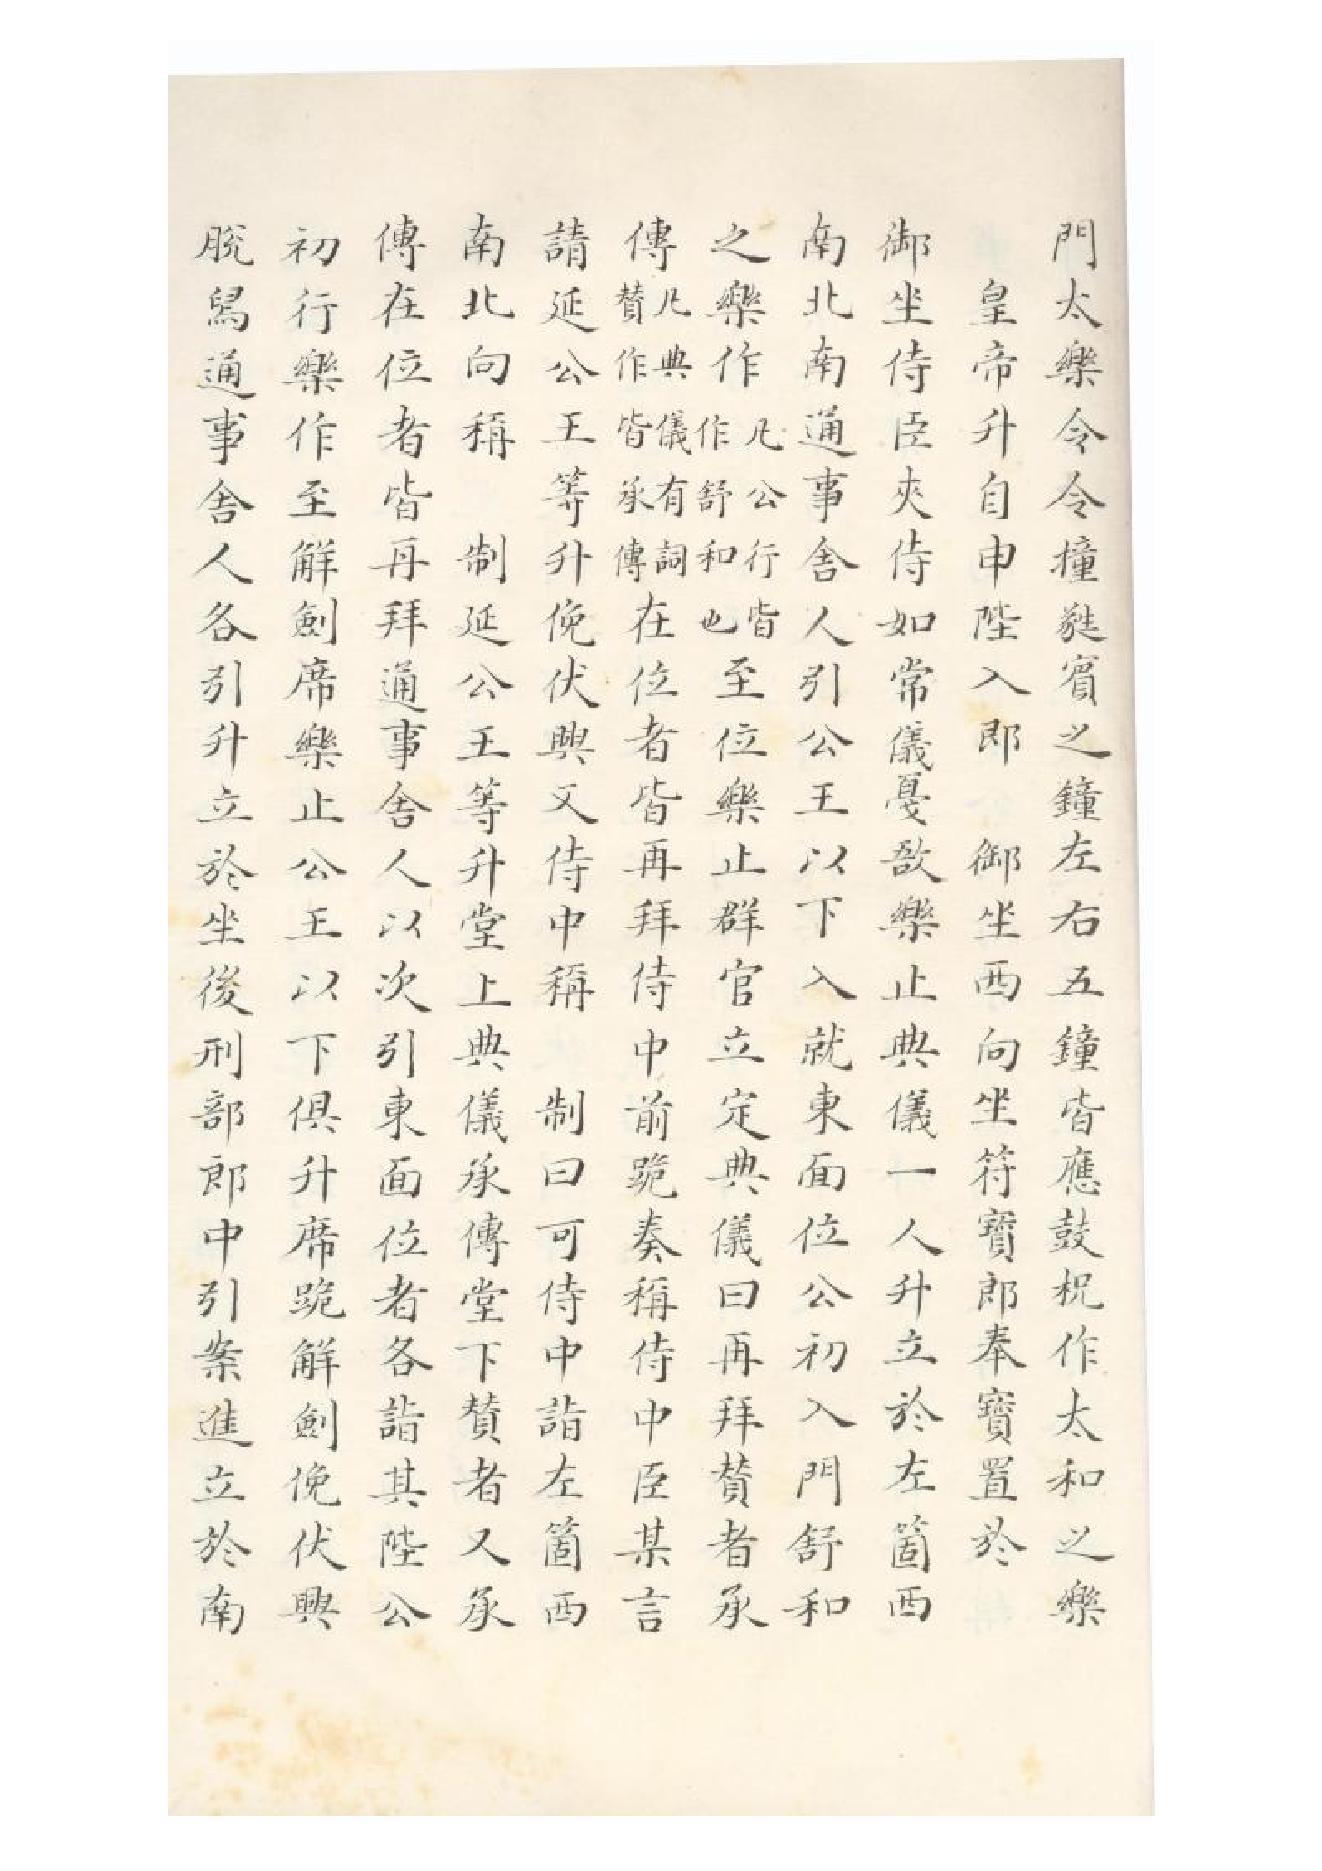 門太樂令令撞蕤賓之鐘左右五鐘皆應鼓柷作太和之樂
皇帝升自申陛入即　御坐西向坐符寶郎奉寶置於
御坐侍臣夾侍如常儀戞敔樂止典儀一人升立於左箇西
南北南通事舍人引公王以下入就東面位公初入門舒和
之樂作凡公行皆作舒和也至位樂止群官立定典儀曰再拜贊者承
傳凡典儀有詞贊作皆承傳在位者皆再拜侍中前跪奏稱侍中臣某言
請延公王等升俛伏興又侍中稱　制曰可侍中詣左箇西
南北向稱　制延公王等升堂上典儀承傳堂下贊者又承
傳在位者皆再拜通事舍人以次引東面位者各詣其陛公
初行樂作至解劍席樂止公王以下俱升席跪解劍俛伏興
脫舄通事舍人各引升立於坐後刑部郎中引案進立於南